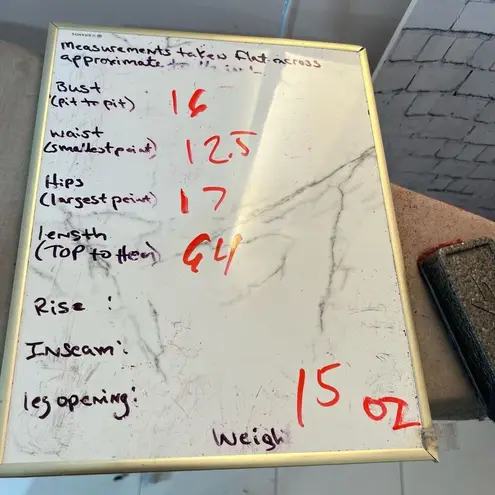 measurements taken flat across
approximate to
Bust
(pit to pit) 16
waist
(smallest point) 12.5
Hips
(largest point) 17
length
(TOP to Hem) 64
Rise :
Inseam:
leg opening:
15 oz
Weigh